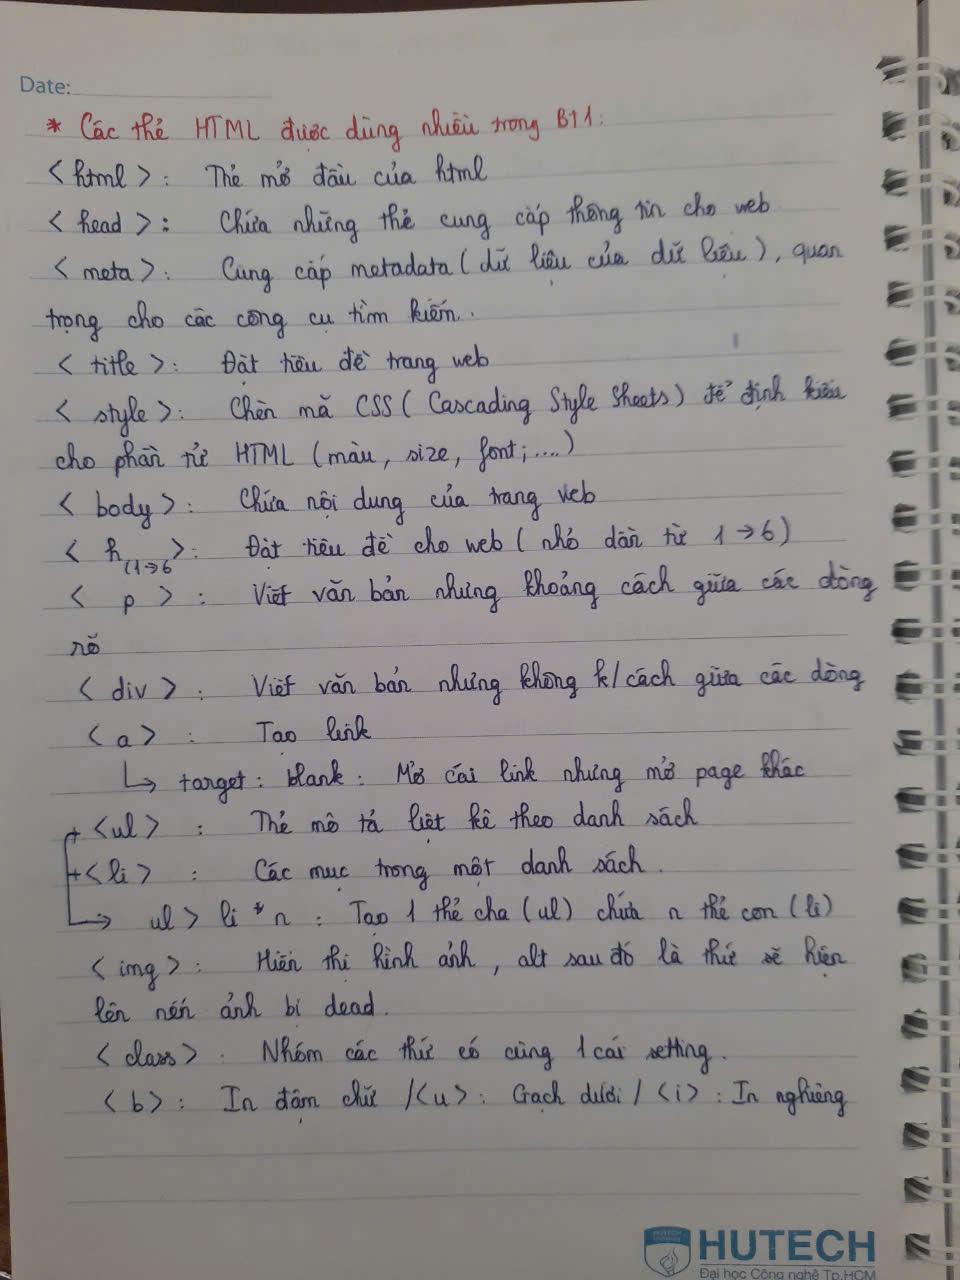 Date:
* Các thẻ HTML được dùng nhiều trong BT1:
<html>: Thẻ mở đầu của html
<head>: Chứa những thẻ cung cấp thông tin cho web
<meta>: Cung cấp metadata (dữ liệu của dữ liệu), quan
trọng cho các công cụ tìm kiếm.
<title>: Đặt tiêu đề trang web
<style>: Chèn mã CSS (Cascading Style Sheets) để định kiểu
cho phần tử HTML (màu, size, font;....)
<body>: Chứa nội dung của trang web
<h(1→6>: Đặt tiêu đề cho web (nhỏ dần từ 1→6)
<p>: Viết văn bản nhưng khoảng cách giữa các dòng
rõ
<div>: Viết văn bản nhưng không k/cách giữa các dòng
<a>: Tạo link
↳ target: blank: Mở cái link nhưng mở page khác
+ <ul>: Thẻ mô tả liệt kê theo danh sách
+ <li>: Các mục trong một danh sách.
→ ul > li * n: Tạo 1 thẻ cha (ul) chứa n thẻ con (li)
<img>: Hiển thị hình ảnh, alt sau đó là thứ sẽ hiện
lên nếu ảnh bị dead.
<class>: Nhóm các thứ có cùng 1 cái setting.
<b>: In đậm chữ /<u>: Gạch dưới / <i>: In nghiêng
HUTECH
Đại học Công nghệ Tp.HCM